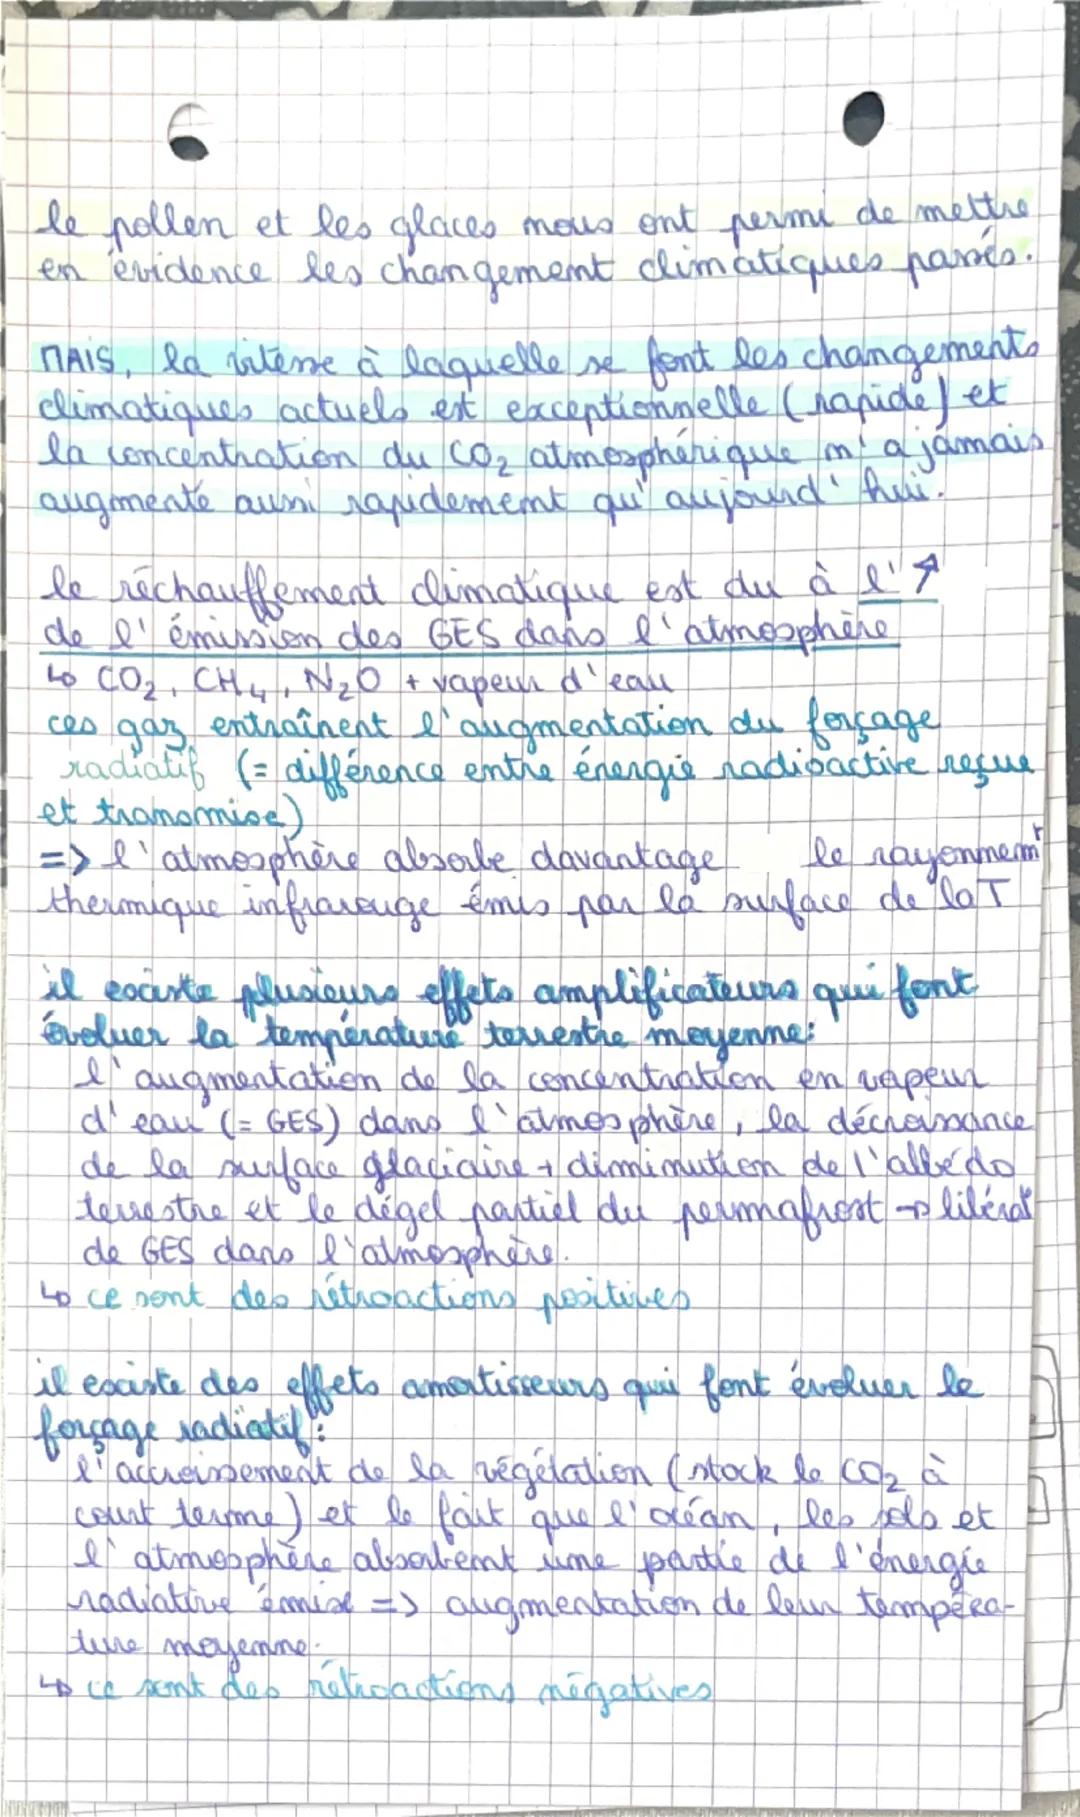 le pollen et les glaces nous ont permi de mettre
en évidence les changement climatiques passés.
MAIS, la vitesse à laquelle se font les changements
climatiques actuels est exceptionnelle (rapide) et
la concentration du CO₂ atmosphérique n'a jamais
augmenté aussi rapidement qu'aujourd'hui.
le réchauffement climatique est du à l'↗
de l'émission des GES dans l'atmosphère
↳ CO₂, CH₄, N₂O + vapeur d'eau
ces gaz entraînent l'augmentation du forçage
radiatif (= différence entre énergie radioactive reçue
et transmise)
=> l'atmosphère absorbe davantage le rayonnement
thermique infrarouge émis par la surface de la T
il existe plusieurs effets amplificateurs qui font
évoluer la température terrestre moyenne:
l'augmentation de la concentration en vapeur
d'eau (= GES) dans l'atmosphère, la décroissance
de la surface glaciaire + dimminution de l'albédo
terrestre et le dégel partiel du permafrost → libérat°
de GES dans l'atmosphère.
↳ ce sont des rétroactions positives
il existe des effets amortisseurs qui font évoluer le
forçage radiatif:
l'accroissement de la végétation (stock le CO₂ à
court terme) et le fait que l'océan, les sols et
l'atmosphère absorbent une partie de l'énergie
radiative émise => augmentation de leur tempéra-
ture moyenne.
↳ ce sont des rétroactions négatives